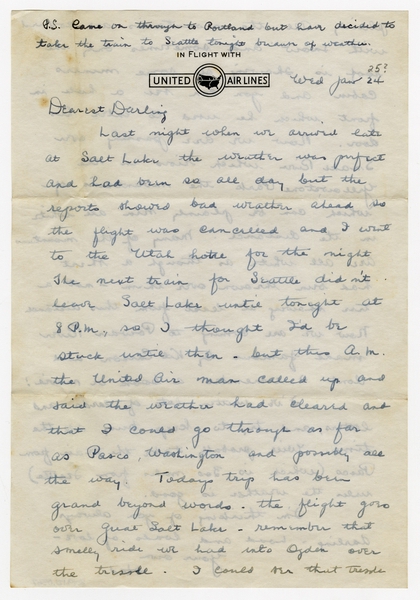 P.S. Came on through to Portland but have decided to
take the train to Seattle tonight because of weather.
IN FLIGHT WITH
UNITED AIR LINES
25?
Wed Jan 24
Dearest Darling
Last night when we arrived late
at Salt Lake the weather was perfect
and had been so all day, but the
reports showed bad weather ahead so
the flight was cancelled and I went
to the Utah hotel for the night
The next train for Seattle didn't
leave Salt Lake until tonight at
8 P.M., so I thought I'd be
stuck until then - but this A.M.
the United Air man called up and
said the weather had cleared and
that I could go through as far
as Pasco, Washington and possibly all
the way Todays trip has been
grand beyond words. - the flight goes
over great Salt Lake - remember that
smelly ride we had into Ogden over
the tressle. I could see that tressle